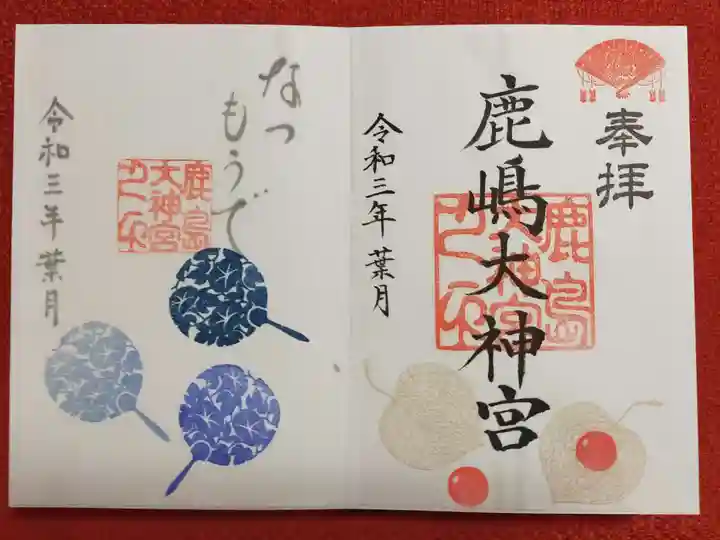 奉拝
鹿嶋大神宮
鹿島
大神宮
之印
令和三年 葉月
なつ
もうで
鹿島
大神宮
之印
令和三年 葉月